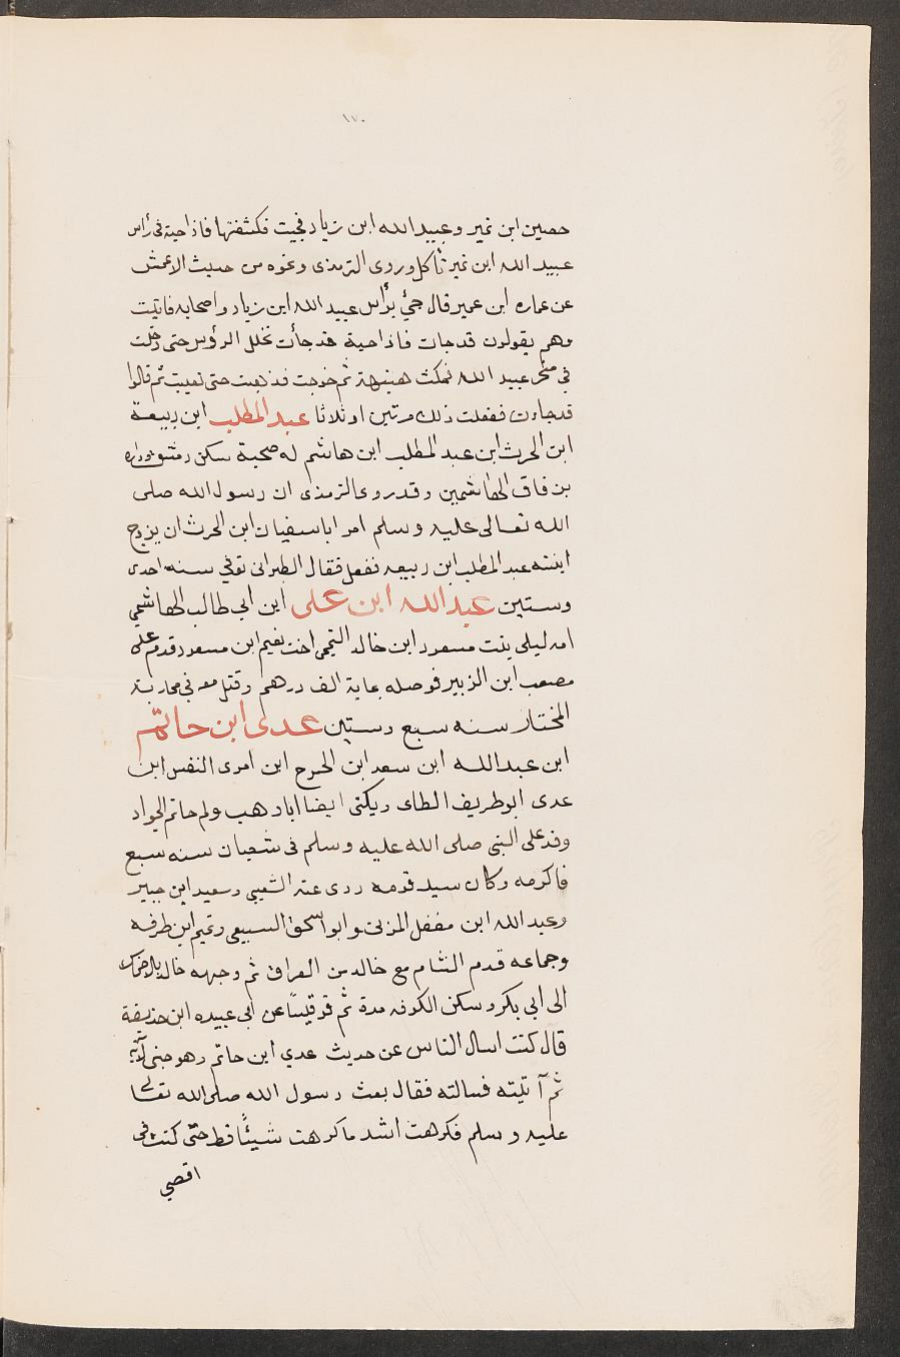 ١٧٠
حصين ابن نمير وعبيد الله ابن زياد فجيت فكشفتها فاذا حية فى رأس
عبيد الله ابن نمير تأكل وروى الترمذى ونحوه من حديث الاعمش
عن عماره ابن عمير قال جئ برأس عبيد الله ابن زياد واصحابه فاتيت
وهم يقولون قد جات فاذا حية قد جأت تخلل الرؤس حتى دخلت
فى منخر عبيد الله فمكثت هنيهة ثم خرجت فذهبت حتى تغيبت ثم قالوا
قد جاءت ففعلت ذلك مرتين او ثلاثا عبد المطلب ابن ربيعة
ابن الحرث ابن عبد المطلب ابن هاشم له صحبة سكن دمشق وداره
بزقاق الهاشميين وقد روى الترمذى ان رسول الله صلى
الله تعالى عليه وسلم امر اباسفيان ابن الحرث ان يزوج
ابنته عبد المطلب ابن ربيعه ففعل فقال الطبرانى توفى سنه احدى
وستين عبد الله ابن على ابن ابي طالب الهاشمي
امه ليلى بنت مسعود ابن خالد التيمى اخت نعيم ابن مسعود قدم على
مصعب ابن الزبير فوصله بماية الف درهم وقتل معه فى محاربة
المختار سنه سبع وستين عدى ابن حاتم
ابن عبد الله ابن سعد ابن الحرح ابن امرى النفس ابن
عدى ابو طريف الطاى ويكنى ايضا اباوهب ولم حاتم الجواد
وفد على النبى صلى الله عليه وسلم فى شعبان سنه سبع
فاكرمه وكان سيد قومه روى عنه الشعبي وسعيد ابن جبير
وعبد الله ابن مغفل المزنى وابو اسحق السبيعى وتميم ابن طرفه
وجماعه قدم الشام مع خالد من العراق ثم وجهه خالد بالاخماس
الى ابي بكر وسكن الكوفه مدة ثم قرقيسا عن ابى عبيده ابن حذيفة
قال كنت اسال الناس عن حديث عدي ابن حاتم وهو جنبى لا آتيه
ثم آتيته فسالته فقال بعث رسول الله صلى الله تعالى
عليه وسلم فكرهت اشد ما كرهت شيئًا قط حتى كنت فى
اقصي